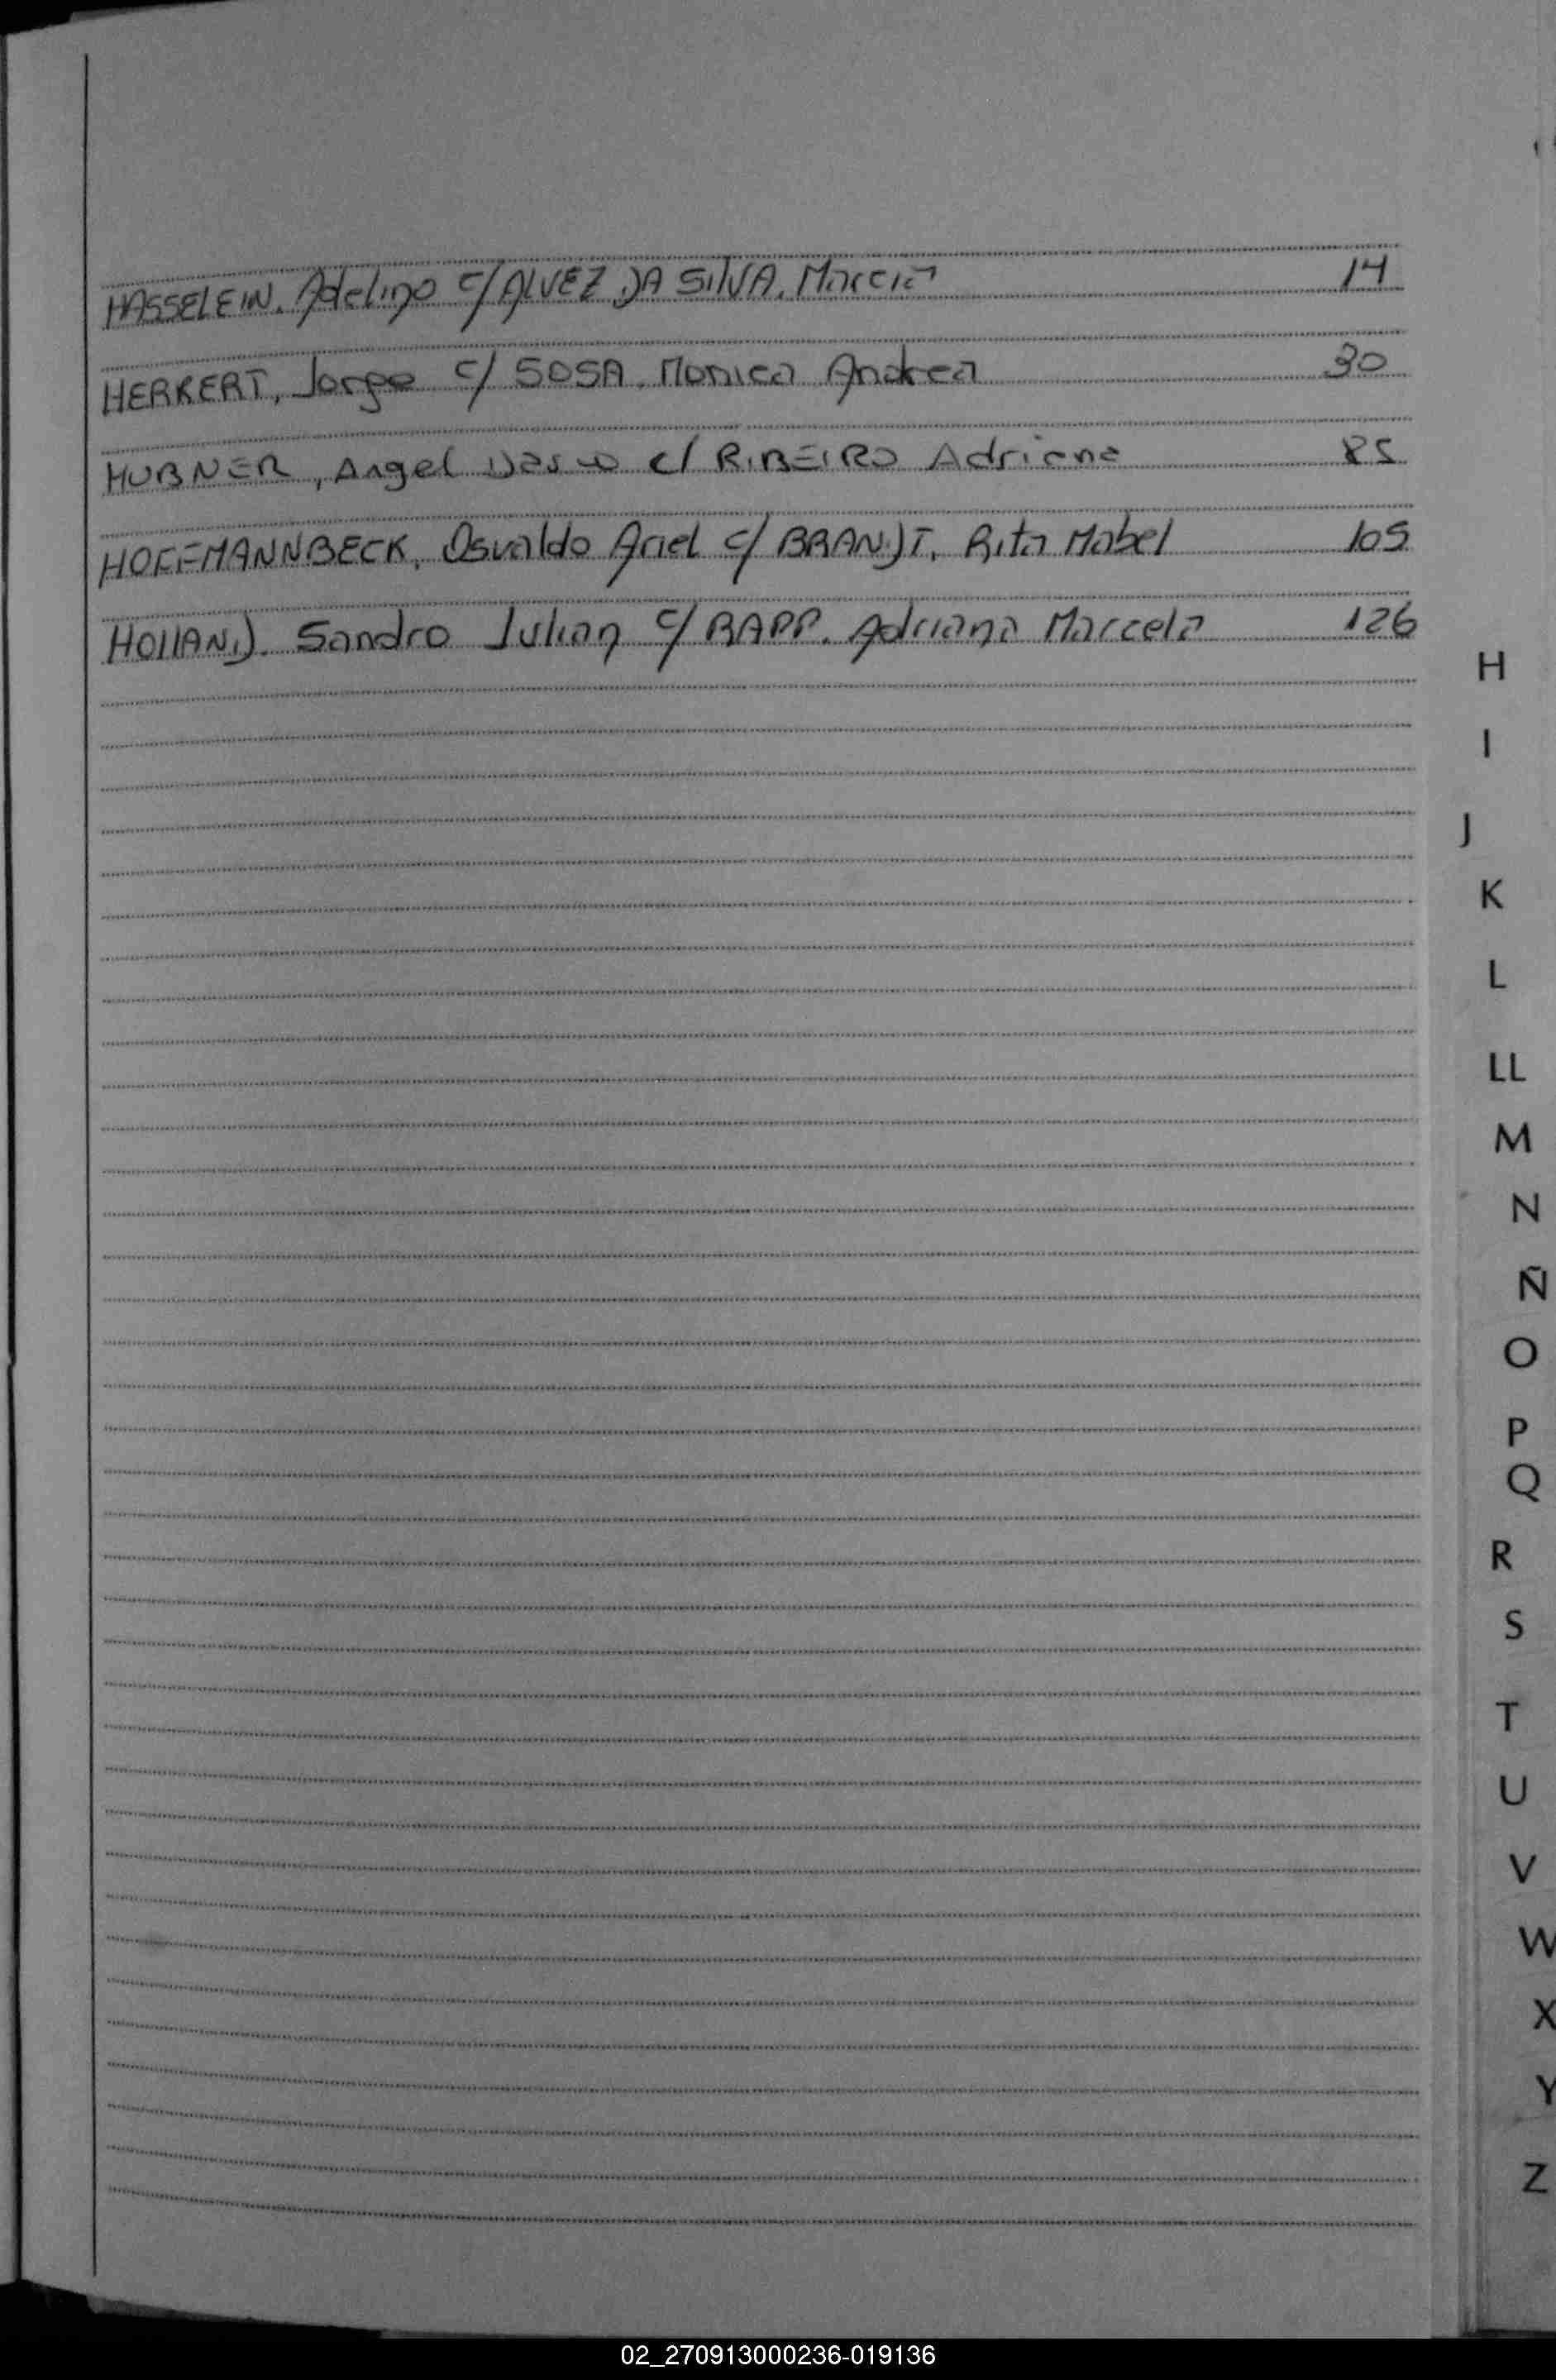 HASSELEIN, Adelino c/ ALVEZ DA SILVA, Marcia 14
HERKERT, Jorge c/ SOSA, Monica Andrea 30
HUBNER, Angel c/ RIBEIRO Adriana 85
HOFFMANNBECK, Osvaldo Ariel c/ BRANDT, Rita Mabel 105
HOllAND, Sandro Julian c/ RAPP, Adriana Marcela 126
H
I
J
K
L
LL
M
N
Ñ
O
P
Q
R
S
T
U
V
W
X
Y
Z
02_270913000236-019136